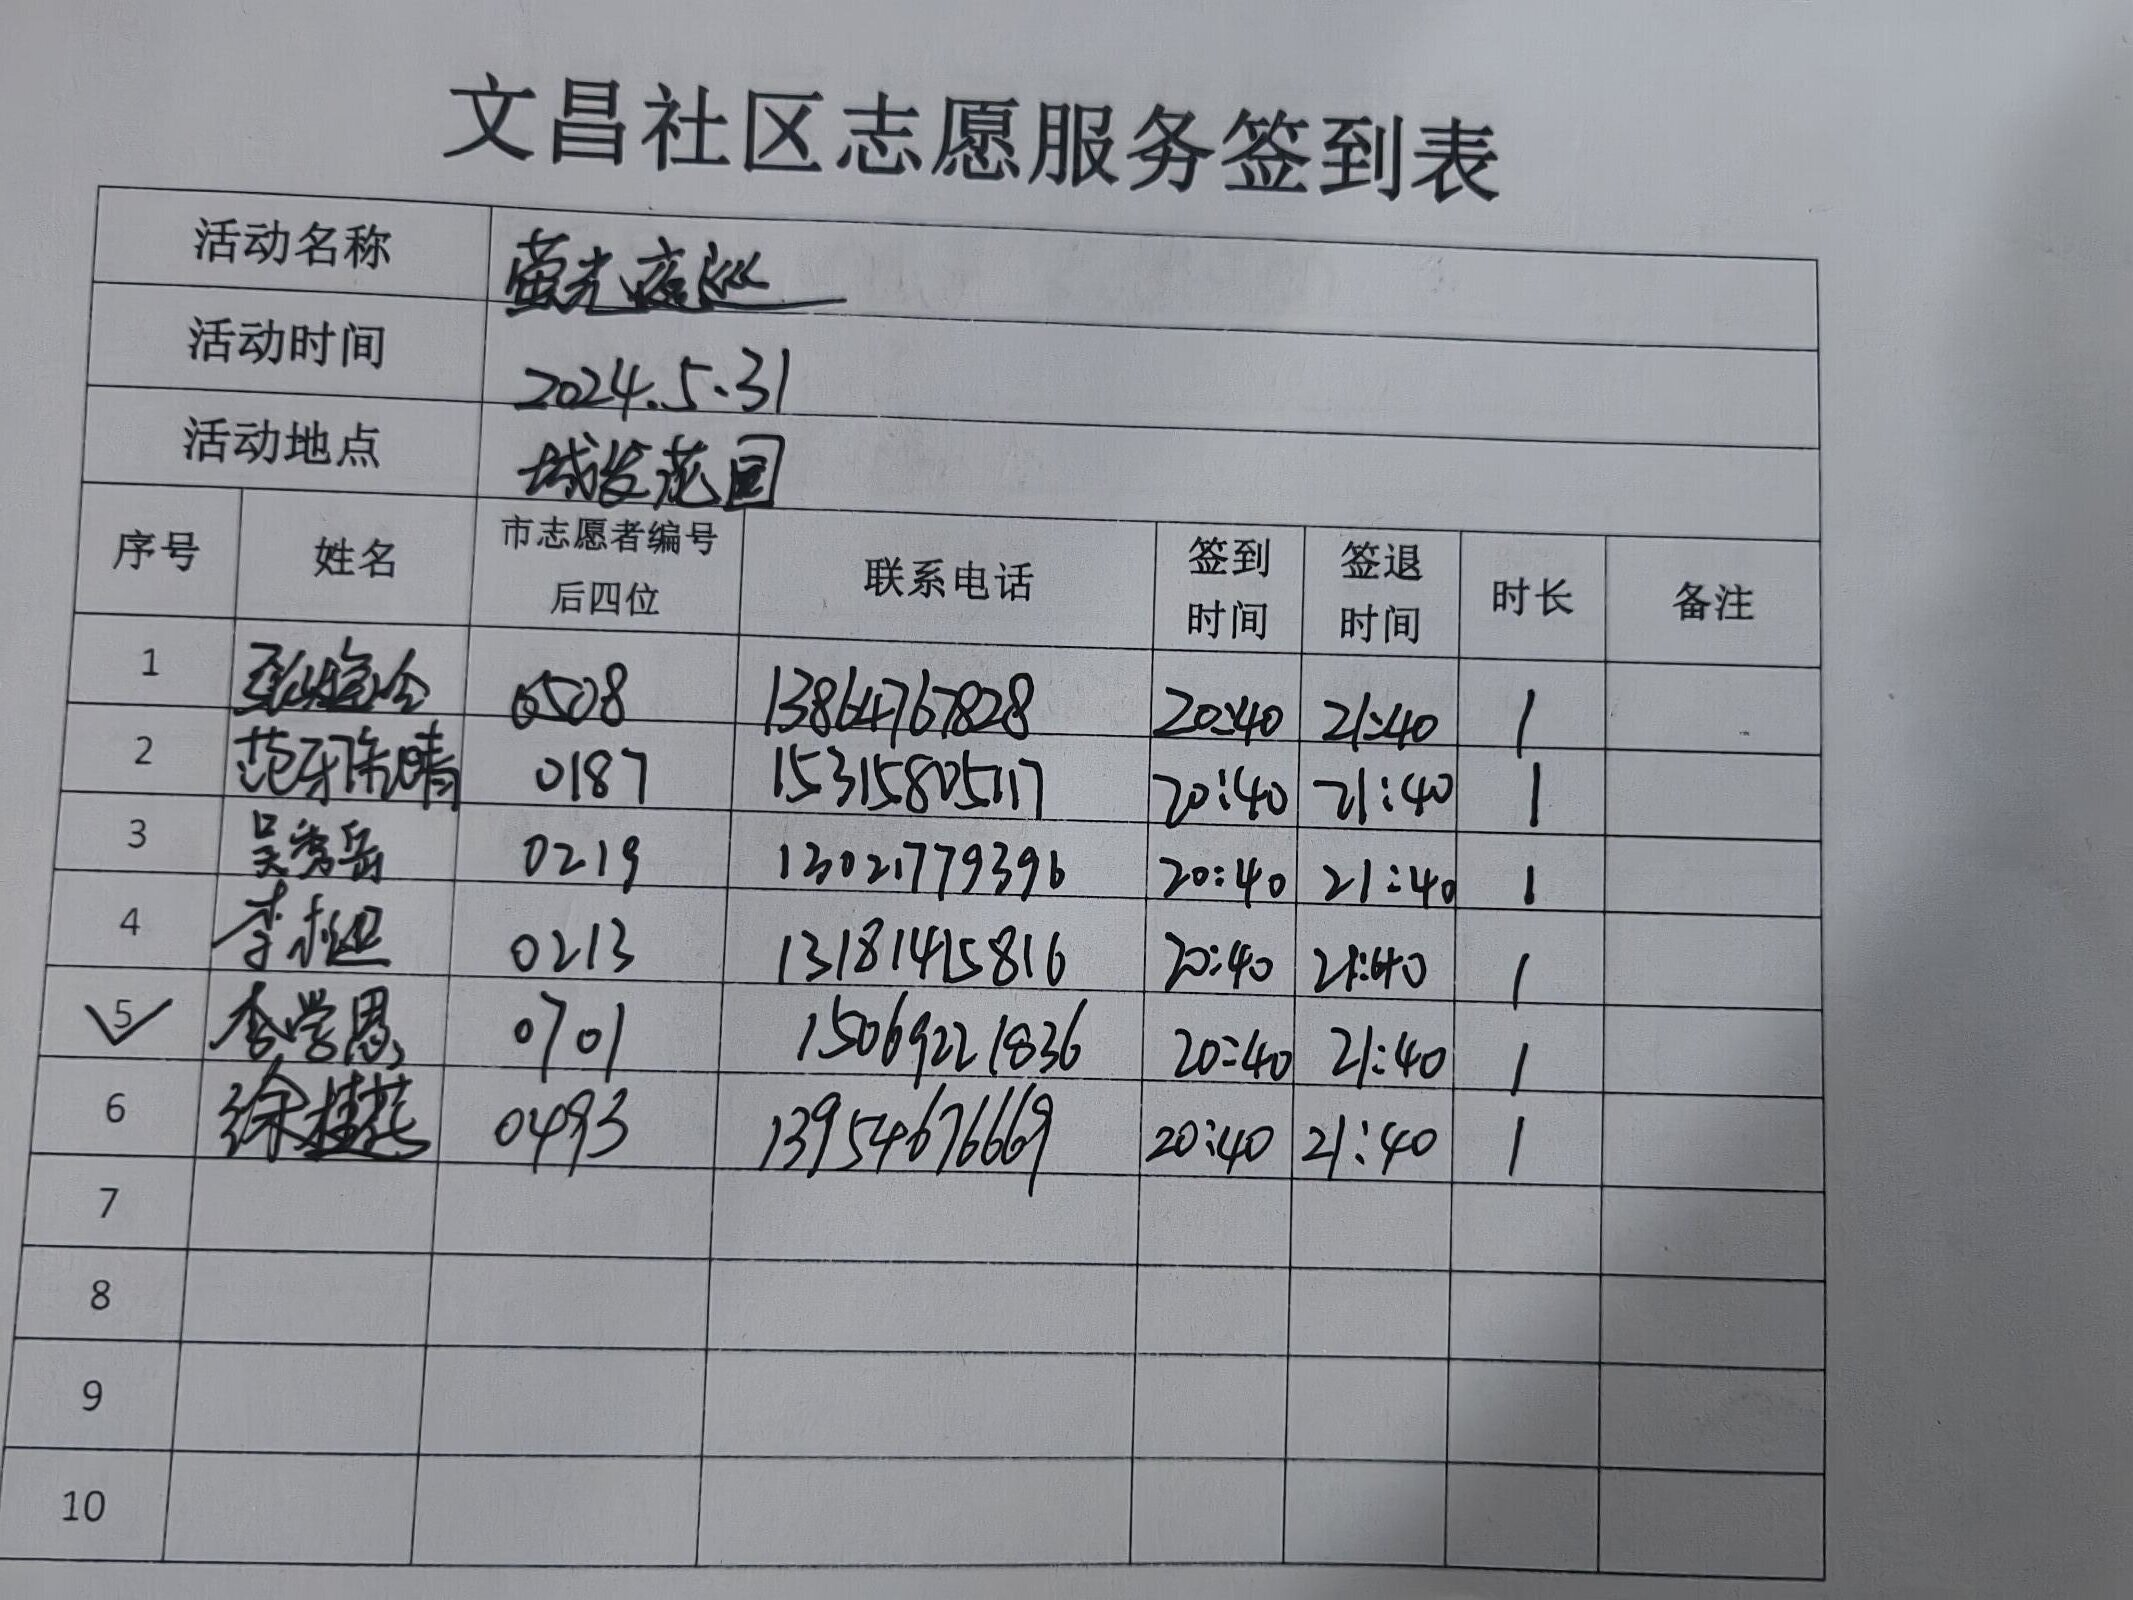 文昌社区志愿服务签到表
活动名称 萤光夜巡
活动时间 2024.5.31
活动地点 城发花园
序号 姓名 市志愿者编号后四位 联系电话 签到时间 签退时间 时长 备注
1 0508 13864767828 20:40 21:40 1
2 范牙陈晴 0187 15315805117 20:40 21:40 1
3 吴秀岳 0219 13021779396 20:40 21:40 1
4 李 0213 13181415816 20:40 21:40 1
5 李学恩 0701 15069221836 20:40 21:40 1
6 徐桂花 0493 13954676669 20:40 21:40 1
7
8
9
10